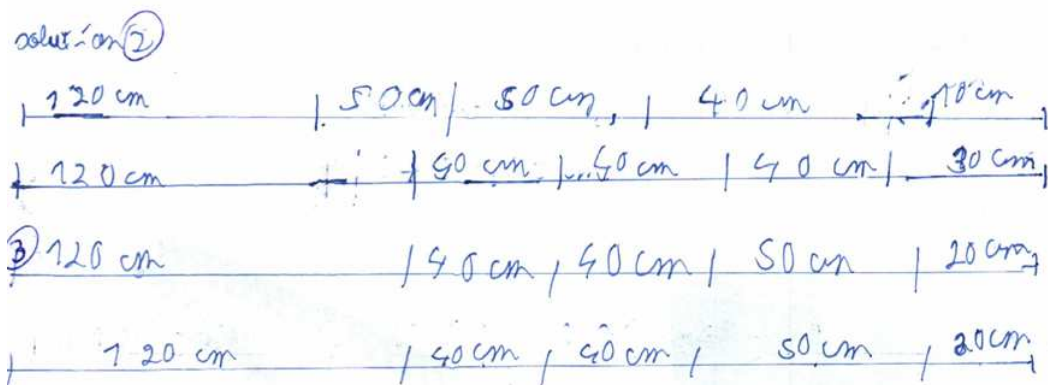 solution ②
120 cm 50 cm 50 cm 40 cm 10 cm
120 cm 40 cm 40 cm 40 cm 30 cm
③ 120 cm 40 cm 40 cm 50 cm 20 cm
120 cm 40 cm 40 cm 50 cm 20 cm